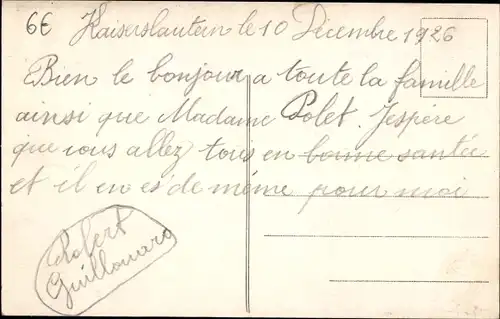 6€
Kaiserslautern le 10 Décembre 1926
Bien le bonjour a toute la famille
ainsi que Madame Polet. J'espère
que vous allez tous en bonne santée
et il en es de même pour moi
Robert
Guillouard